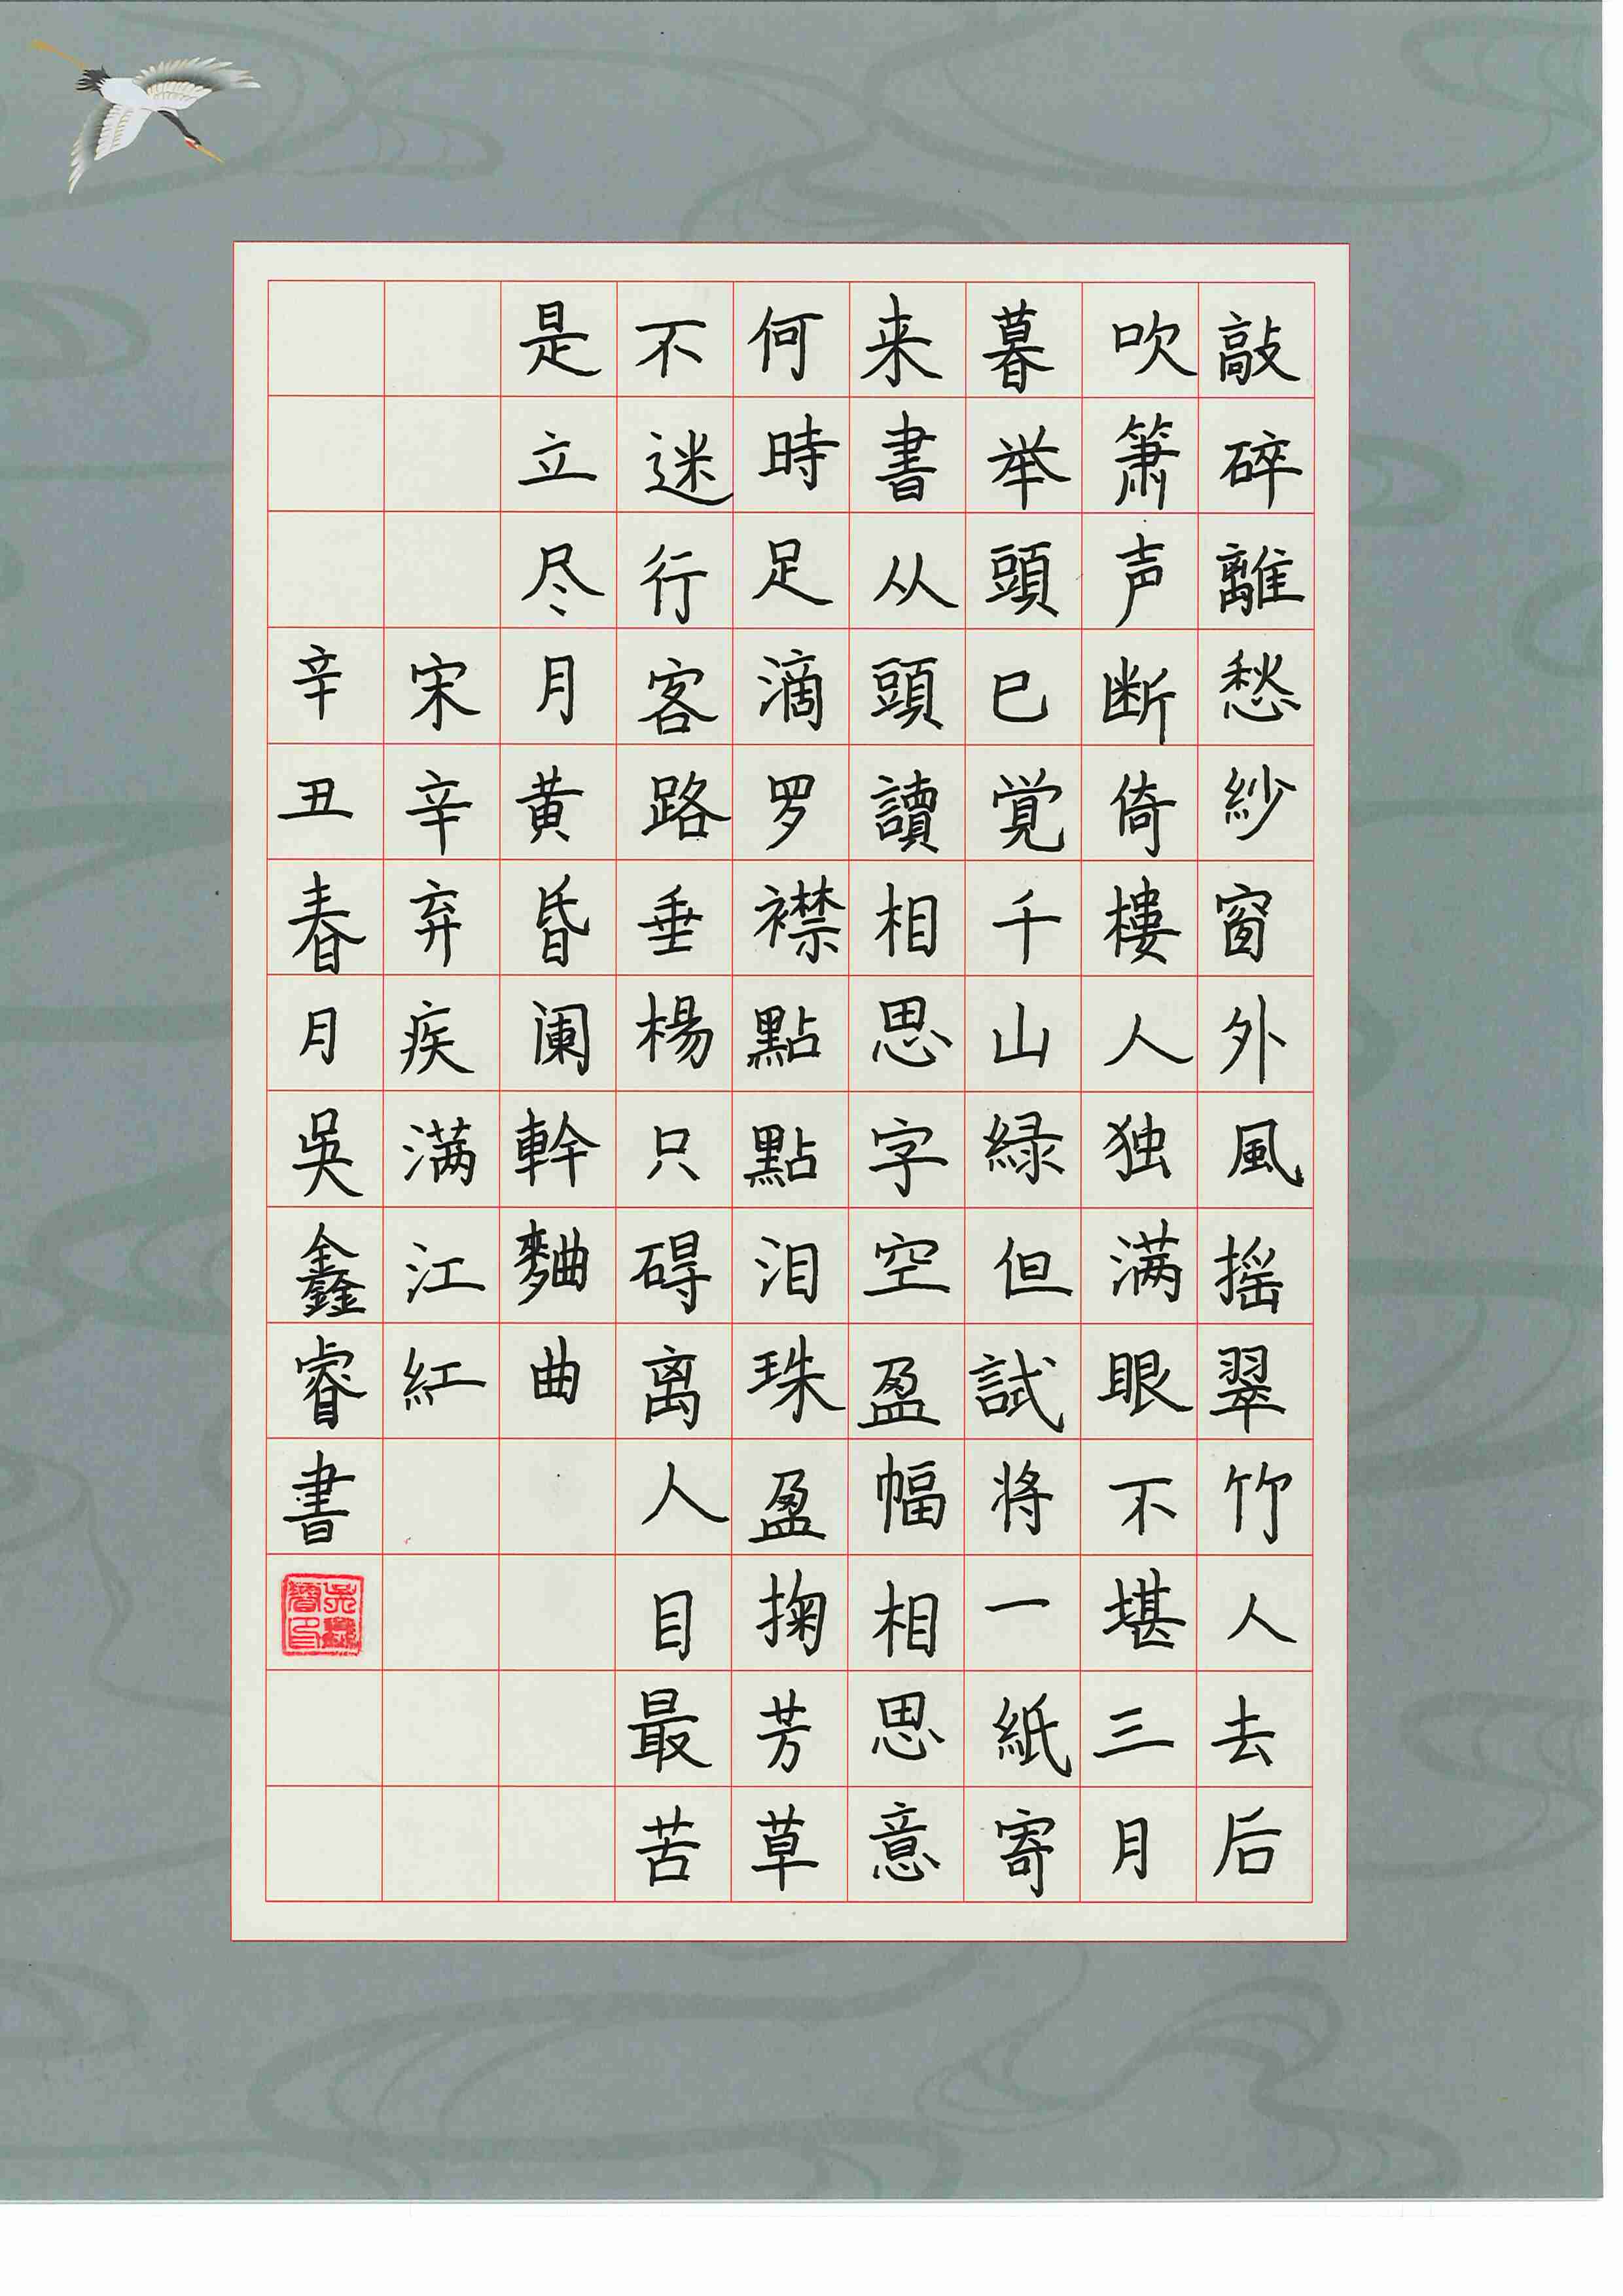 敲碎離愁紗窗外風摇翠竹人去后
吹箫声断倚樓人独满眼不堪三月
暮举頭已覚千山緑但試将一紙寄
来書从頭讀相思字空盈幅相思意
何時足滴罗襟點點泪珠盈掬芳草
不迷行客路垂楊只碍离人目最苦
是立尽月黄昏阑幹麯曲
宋辛弃疾满江紅
辛丑春月吳鑫睿書